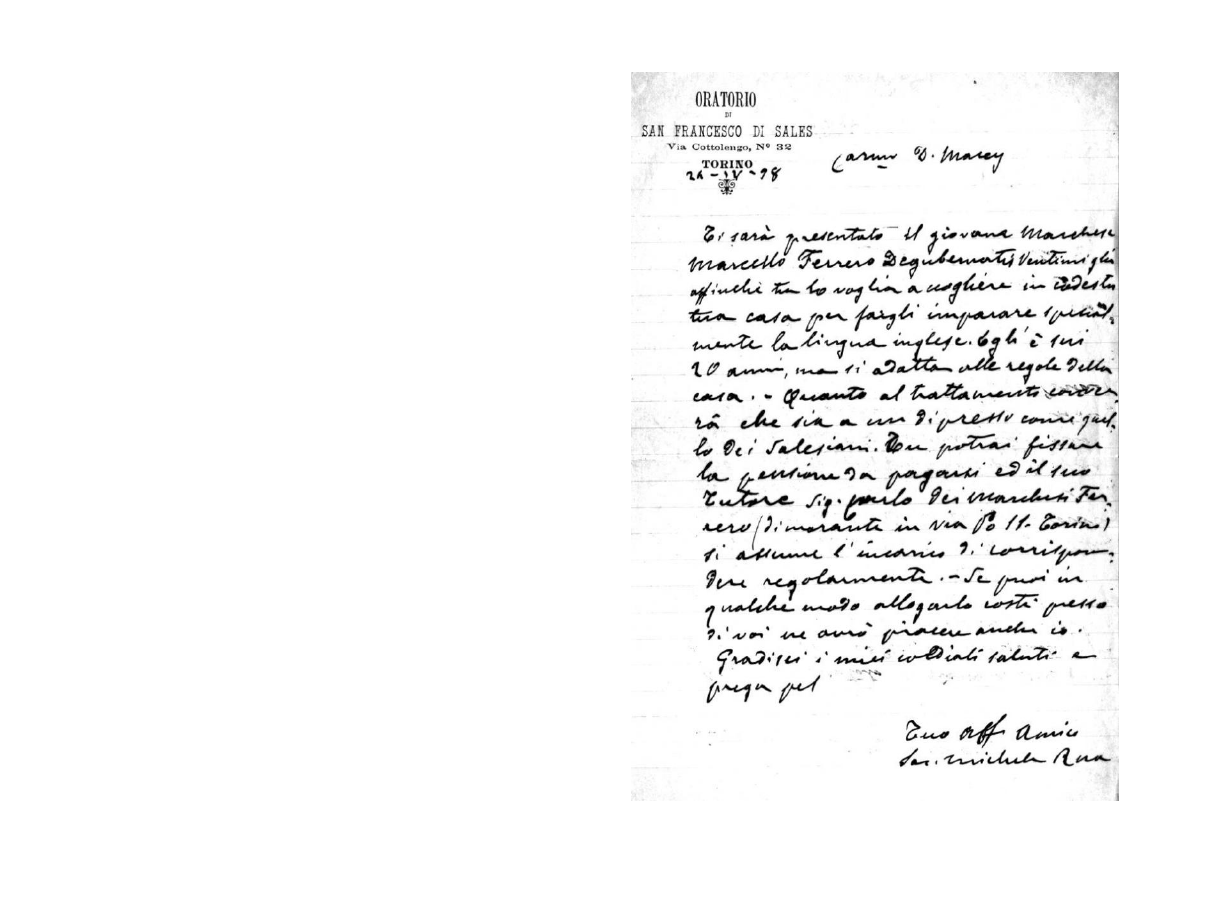 ORATORIO
DI
SAN FRANCESCO DI SALES
Via Cottolengo, Nº 32
TORINO
26-IV-98
Carmo D. Macey
Ti sarà presentato il giovane Marchese
Marcello Ferrero Degubernatis Ventimiglia
affinchè tu lo voglia accogliere in codesta
tua casa per fargli imparare special-
mente la lingua inglese. Egli è sui
20 anni, ma si adatta alle regole della
casa. - Quanto al trattamento
rà che sia a un dipresso come quel-
lo dei Salesiani. Tu potrai fissare
la pensione da pagarsi ed il suo
Tutore Sig. Carlo dei Marchesi Fer-
rero (dimorante in via Po 11 - Torino)
si assume l'incarico di corrispon-
dere regolarmente. - Se puoi in
qualche modo allogarlo costì presso
di voi ne avrò piacere anche io.
Gradisci i miei cordiali saluti e
prega pel
Tuo Aff. Amico
Sac. Michele Rua